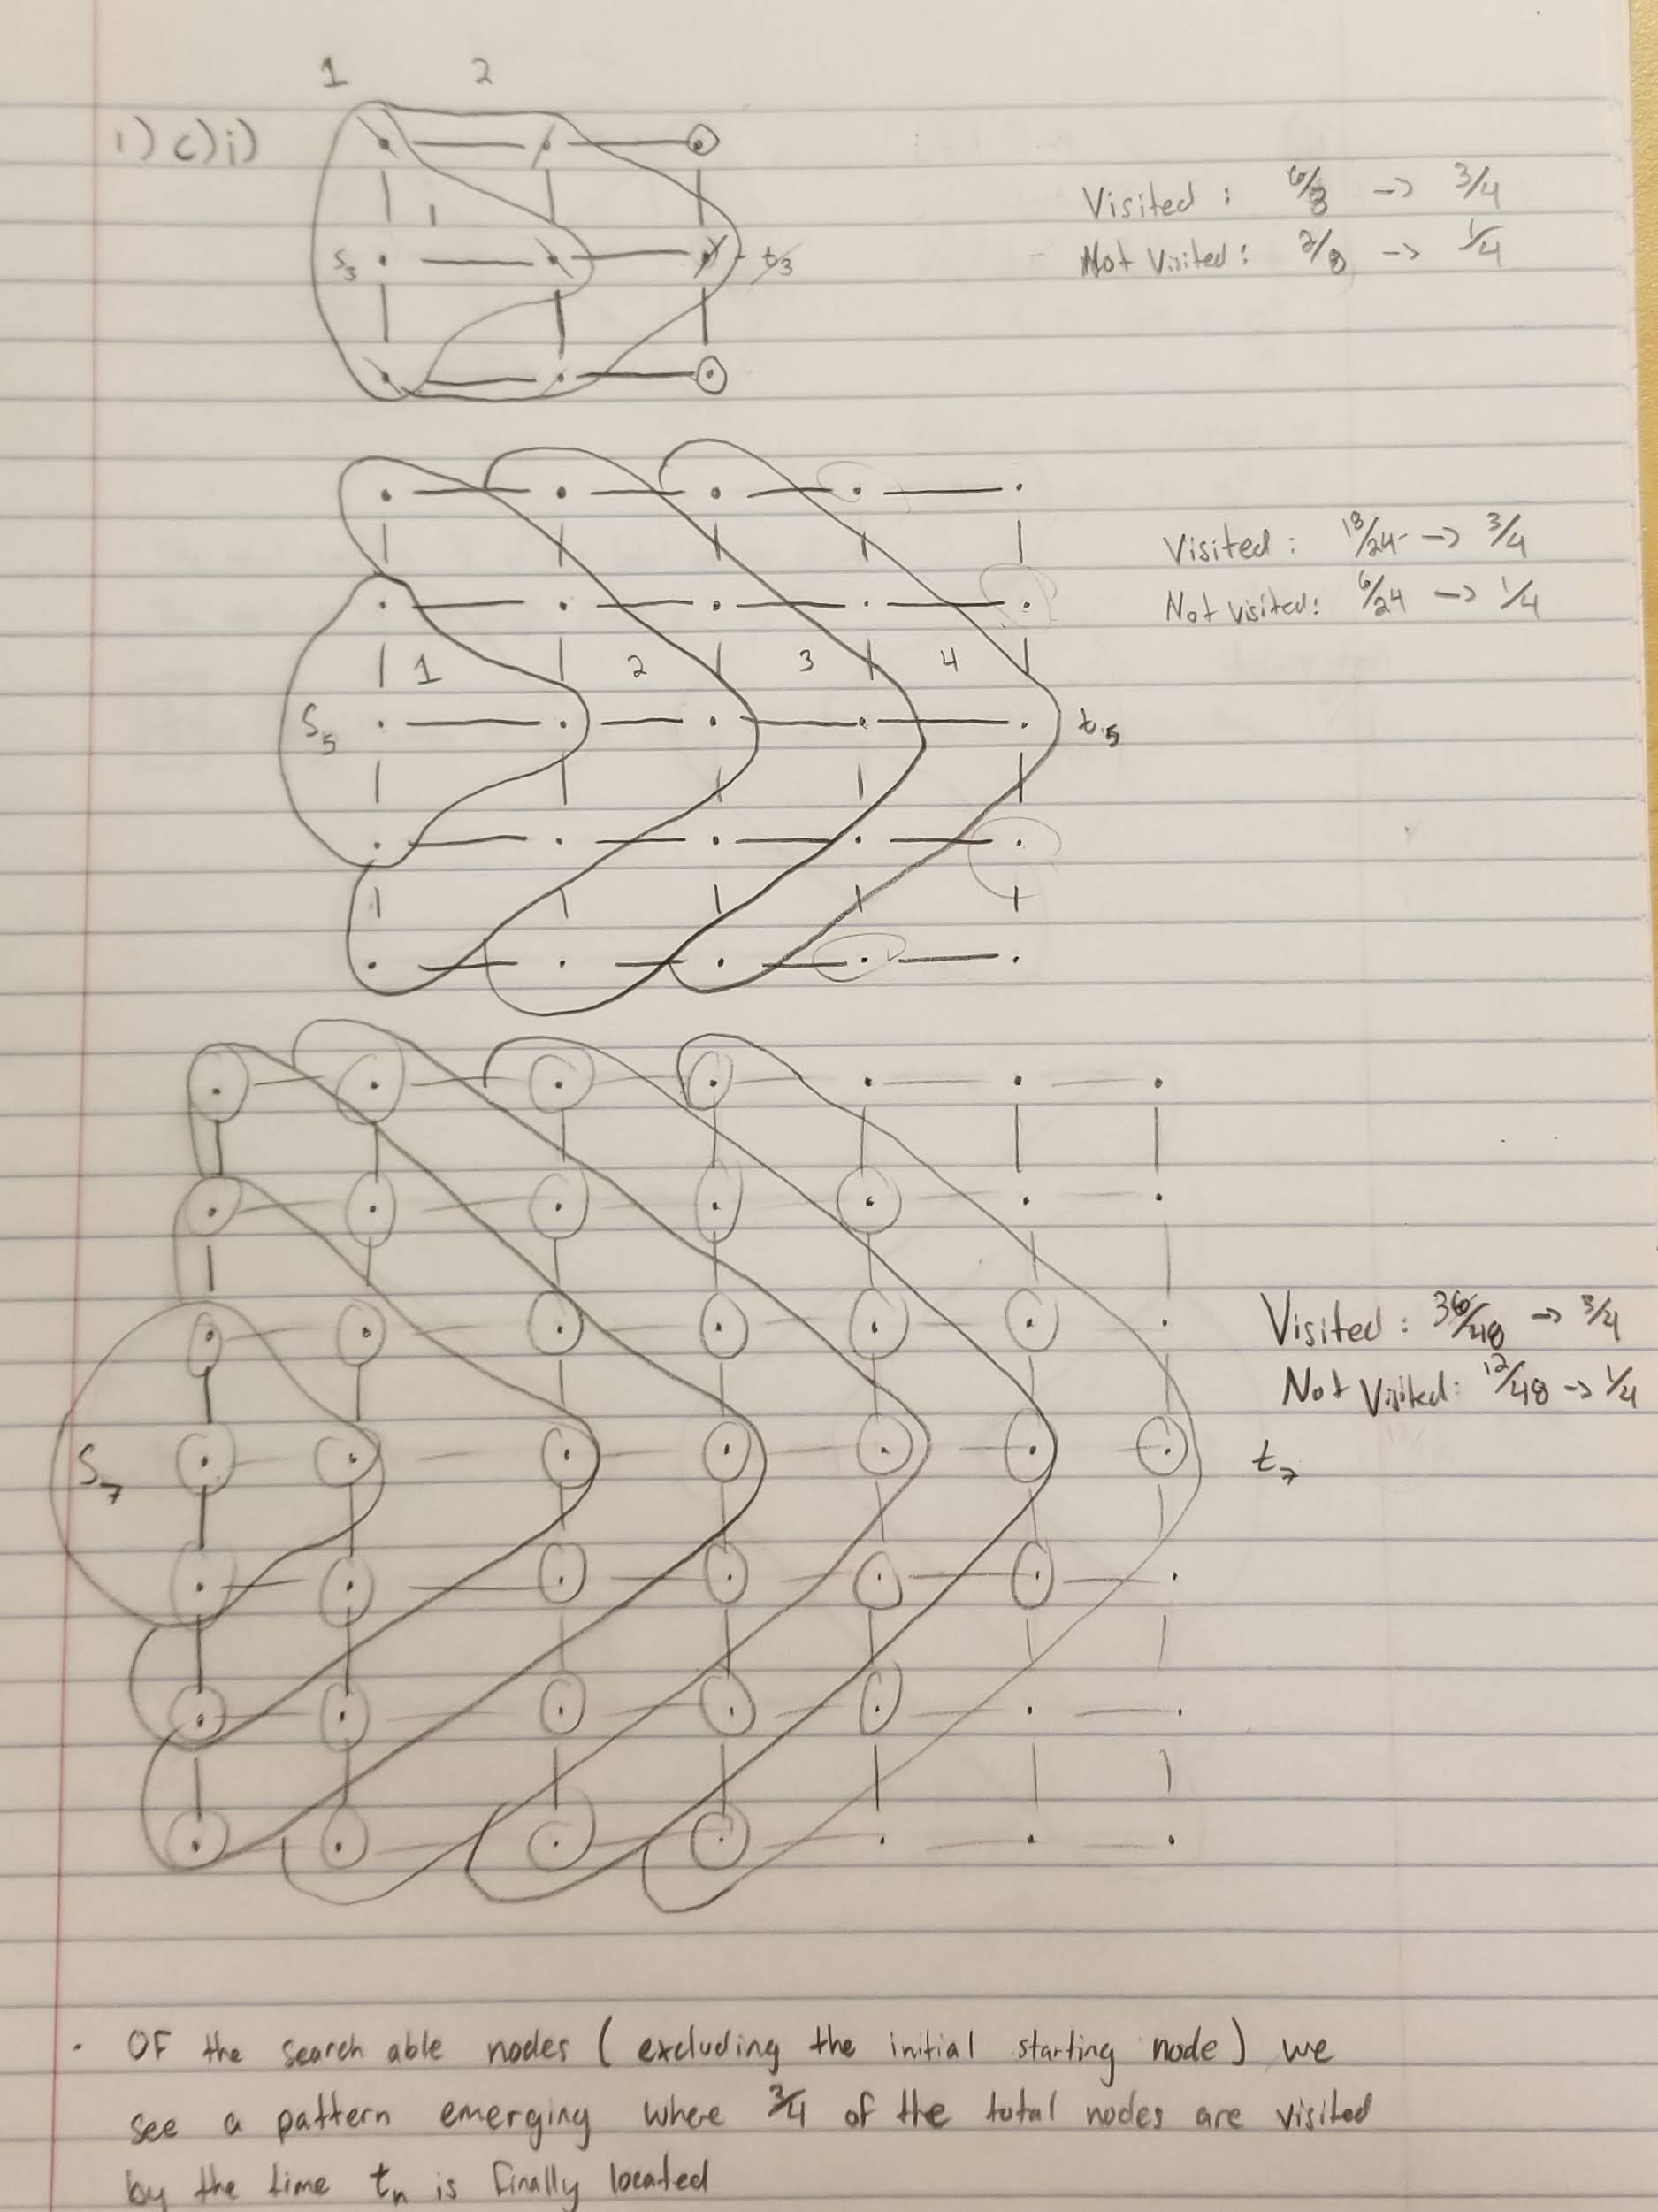 1 2
1) c) i)
1
S3 t3
Visited : 6/8 -> 3/4
Not Visited : 2/8 -> 1/4
Visited : 18/24 -> 3/4
Not visited : 6/24 -> 1/4
1 2 3 4
S5 t5
Visited : 36/48 -> 3/4
Not Visited : 12/48 -> 1/4
S7 t7
· OF the search able nodes ( excluding the initial starting node ) we
see a pattern emerging where 3/4 of the total nodes are visited
by the time tn is finally located